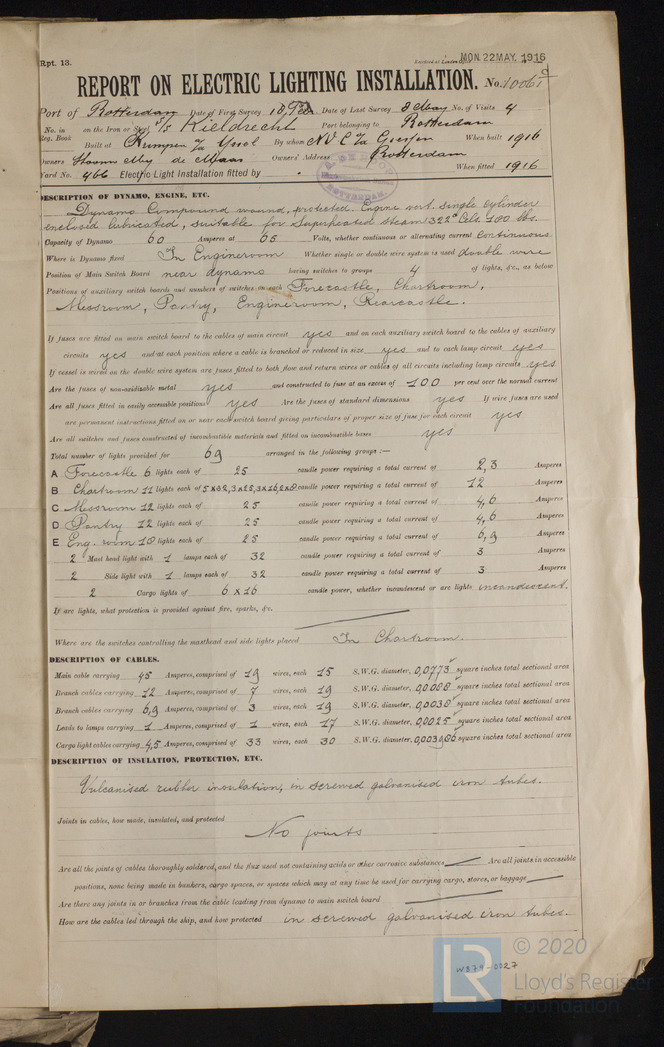 Rpt. 13.
MON. 22 MAY. 1916
REPORT ON ELECTRIC LIGHTING INSTALLATION. No. 10061
Port of Rotterdam Date of First Survey 18 Feb Date of Last Survey 8 May No. of Visits 4
No. in Reg. Book on the Iron or Steel s/s Kieldrecht Port belonging to Rotterdam
Built at Krimpen a/d Yssel By whom When built 1916
Owners Stoom My de Maas Owners' Address Rotterdam
Yard No. 466 Electric Light Installation fitted by When fitted 1916
DESCRIPTION OF DYNAMO, ENGINE, ETC.
Dynamo Compound wound, protected. Engine vert. single cylinder
enclosed lubricated, suitable for Superheated steam 322° Cels. 180 lbs.
Capacity of Dynamo 60 Amperes at 65 Volts, whether continuous or alternating current Continuous
Where is Dynamo fixed In Engineroom Whether single or double wire system is used double wire
Position of Main Switch Board near dynamo having switches to groups 4 of lights, &c., as below
Positions of auxiliary switch boards and numbers of switches on each Forecastle, Chartroom,
Messroom, Pantry, Engineroom, Rearcastle.
If fuses are fitted on main switch board to the cables of main circuit yes and on each auxiliary switch board to the cables of auxiliary
circuits yes and at each position where a cable is branched or reduced in size yes and to each lamp circuit yes
If vessel is wired on the double wire system are fuses fitted to both flow and return wires or cables of all circuits including lamp circuits yes
Are the fuses of non-oxidizable metal yes and constructed to fuse at an excess of 100 per cent over the normal current
Are all fuses fitted in easily accessible positions yes Are the fuses of standard dimensions yes If wire fuses are used
are permanent instructions fitted on or near each switch board giving particulars of proper size of fuse for each circuit yes
Are all switches and fuses constructed of incombustible materials and fitted on incombustible bases yes
Total number of lights provided for 69 arranged in the following groups :—
A Forecastle 6 lights each of 25 candle power requiring a total current of 2,3 Amperes
B Chartroom 11 lights each of 5x32, 3x25, 3x16, 2x8 candle power requiring a total current of 12 Amperes
C Messroom 12 lights each of 25 candle power requiring a total current of 4,6 Amperes
D Pantry 12 lights each of 25 candle power requiring a total current of 4,6 Amperes
E Eng-room 18 lights each of 25 candle power requiring a total current of 6,9 Amperes
2 Mast head light with 1 lamps each of 32 candle power requiring a total current of 3 Amperes
2 Side light with 1 lamps each of 32 candle power requiring a total current of 3 Amperes
2 Cargo lights of 6 x 16 candle power, whether incandescent or arc lights incandescent.
If arc lights, what protection is provided against fire, sparks, &c.
Where are the switches controlling the masthead and side lights placed In Chartroom.
DESCRIPTION OF CABLES.
Main cable carrying 45 Amperes, comprised of 19 wires, each 15 S.W.G. diameter, 0,0773 square inches total sectional area
Branch cables carrying 12 Amperes, comprised of 7 wires, each 19 S.W.G. diameter, 0,0088 square inches total sectional area
Branch cables carrying 6,9 Amperes, comprised of 3 wires, each 19 S.W.G. diameter, 0,0038 square inches total sectional area
Leads to lamps carrying 1 Amperes, comprised of 1 wires, each 17 S.W.G. diameter, 0,0025 square inches total sectional area
Cargo light cables carrying 4,5 Amperes, comprised of 33 wires, each 30 S.W.G. diameter, square inches total sectional area
DESCRIPTION OF INSULATION, PROTECTION, ETC.
Vulcanised rubber insulation, in screwed galvanised iron tubes.
Joints in cables, how made, insulated, and protected
No joints
Are all the joints of cables thoroughly soldered, and the flux used not containing acids or other corrosive substances Are all joints in accessible
positions, none being made in bunkers, cargo spaces, or spaces which may at any time be used for carrying cargo, stores, or baggage
Are there any joints in or branches from the cable leading from dynamo to main switch board
How are the cables led through the ship, and how protected in screwed galvanised iron tubes.
W879-0027
LR
© 2020
Lloyd's Register
Foundation